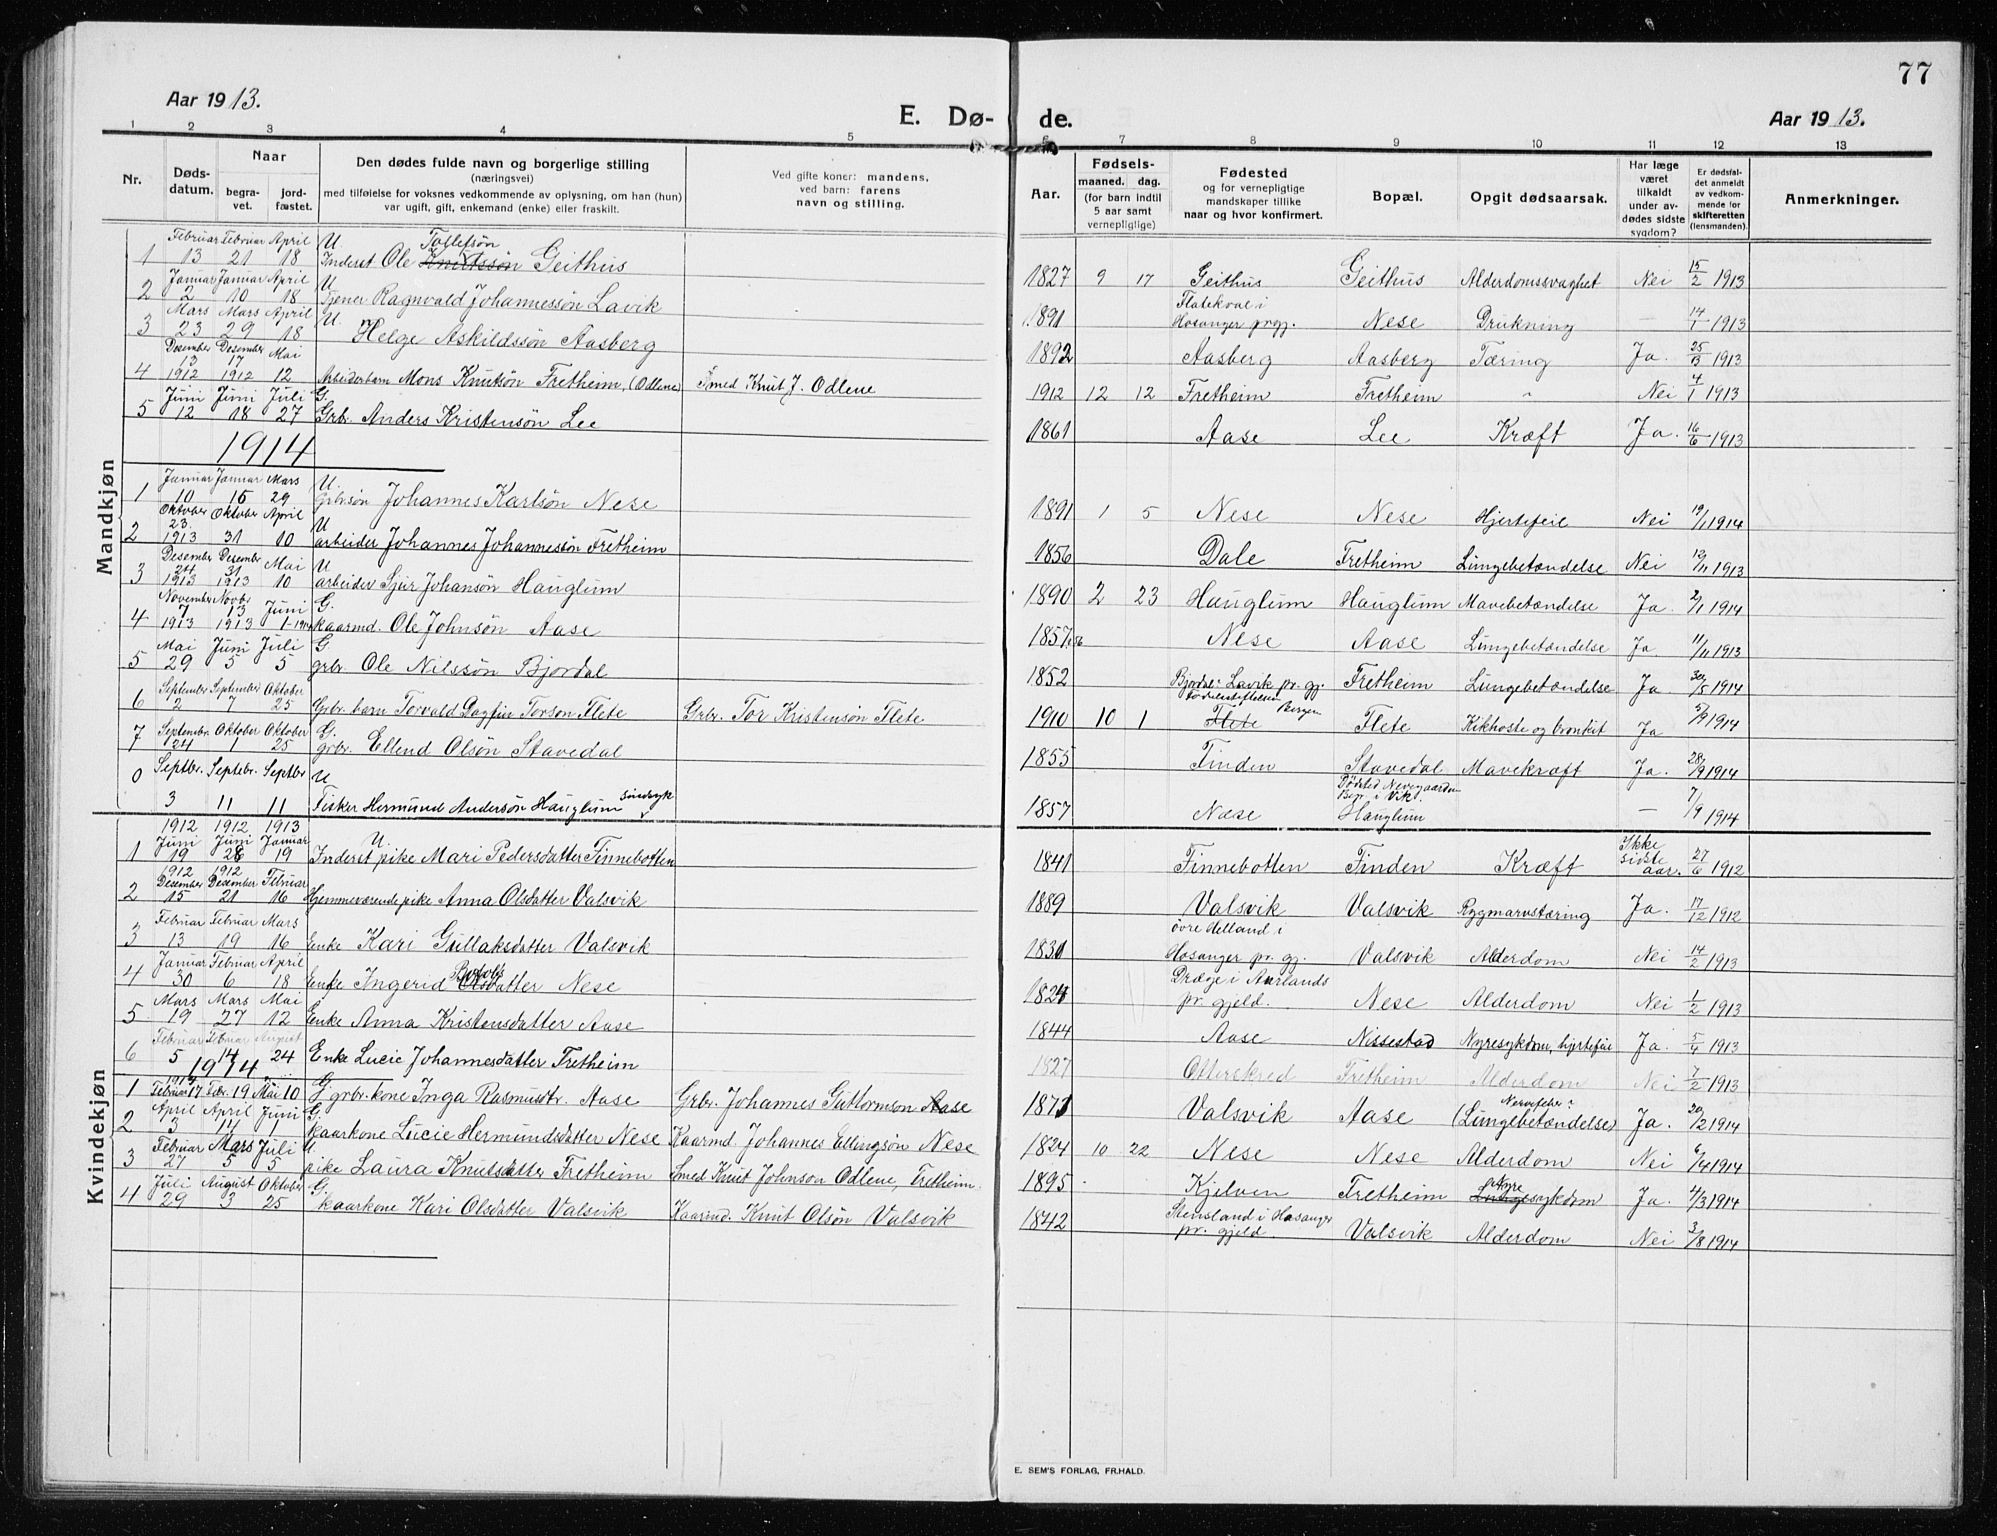 77
Aar 1913.
E. Dø- de.
Aar 1913.
1 2 3 4 5 6 7 8 9 10 11 12 13
Nr.
Døds-
datum.
Naar
begra-
vet.
jord-
fæstet.
Den dødes fulde navn og borgerlige stilling
(næringsvei)
med tilføielse for voksnes vedkommende av oplysning, om han (hun)
var ugift, gift, enkemand (enke) eller fraskilt.
Ved gifte koner: mandens,
ved barn: farens
navn og stilling.
Aar.
Fødsels-
maaned. dag.
(for barn indtil
5 aar samt
vernepligtige)
Fødested
og for vernepligtige
mandskaper tillike
naar og hvor konfirmert.
Bopæl.
Opgit dødsaarsak.
Har læge
været
tilkaldt
under av-
dødes sidste
sygdom?
Er dødsfal-
det anmeldt
av vedkom-
mende for
skifteretten
(lensmanden).
Anmerkninger.
Mandkjøn
Februar Februar April U. Tollefsön
1 13 21 18 Inderst Ole Knutssön Geithus 1827 9 17 Geithus Geithus Alderdomssvaghet Nei 15/2 1913
Januar Januar April U
2 2 10 18 Tjener Ragnvald Johannessön Lavik 1891 Flatekval i Hosanger prgj. Nese Drukning — 14/1 1913
Mars Mars April U.
3 23 29 18 Helge Askildssön Aasberg 1892 Aasberg Aasberg Tæring Ja. 25/3 1913
Desember Desember Mai
13 17
4 1912 1912 12 Arbeiderbarn Mons Knutsön Fretheim, (Odlene) Smed Knut J. Odlene 1912 12 12 Fretheim Fretheim " Nei 4/1 1913
Juni Juni Juli G.
5 12 18 27 Grbr. Anders Kristensön Lee 1861 Aase Lee Kræft Ja. 16/6 1913
1914
Januar Januar Mars U.
1 10 15 29 Grbrsön Johannes Karlsön Nese 1891 1 5 Nese Nese Hjertefeil Nei 19/1 1914
Oktober Oktober April
23. U
2 1913 31 10 arbeider Johannes Johannessön Fretheim 1856 Dale Fretheim Lungebetændelse Nei 12/11 1913
Desember Desember Mai U
24 31
3 1913 1913 10 arbeider Sjur Johansön Hauglum 1890 2 23 Hauglum Hauglum Mavebetændelse Ja 2/1 1914
November Novbr Juni G.
7 13
4 1913 1913 1-1914 kaarmd. Ole Johnsön Aase 1857 56 Nese Aase Lungebetændelse Ja 11/11 1913
Mai Juni Juli G
5 29 5 5 grbr. Ole Nilssön Bjordal 1852 Bjordal i Lavik pr. gj. Fretheim Lungebetændelse Ja 30/5 1914
September September Oktober
6 2 7 25 Grbr. barn Torvald Dagfin Torson Flete Grbr. Tor Kristensön Flete 1910 10 1 Födselsstiftelsen Bergen Flete Flete Kikhoste og bronkit Ja 5/9 1914
Septembr. Oktober Oktober G.
7 24 1 25 grbr. Ellend Olsön Stavedal 1855 Finden Stavedal Mavekræft Ja. 28/9 1914
Septbr. Septebr. Septbr U
0 3 11 11 Fisker Hermund Andersön Hauglum sindssyk 1857 Næse Dödsted Nevegaarden i Vik. Hauglum — 7/9 1914
Kvindekjøn
1912 1912 1913
Juni Juni Januar U.
1 19 28 19 Inderst pike Mari Pedersdatter Finnebotten 1841 Finnebotten Finden Kræft Ikke sidste aar. 27/6 1912
1912 1912
Desember Desember Februar
2 15 21 16 Hjemmeværende pike Anna Olsdatter Valsvik 1889 Valsvik Valsvik Rygmarvstæring Ja. 17/12 1912
Februar Februar Mars
3 13 19 16 Enke Kari Gullaksdatter Valsvik 1831 övre Helland i Hosanger pr. gj. Valsvik Alderdom Nei 14/2 1913
Januar Februar April
4 30 6 18 Enke Ingerid Olsdatter Nese 1824 Drægje i Aurlands pr. gjeld. Nese Alderdom Nei 1/2 1913
Mars Mars Mai
5 19 27 12 Enke Anna Kristensdatter Aase 1844 Aase Nissestad Nyresykdom, hjertefeil Ja. 5/4 1913
Februar Februar August
6 5 14 24 Enke Lucie Johannesdatter Fretheim 1827 Otterskred Fretheim Alderdom Nei 7/2 1913
1914
1 Februar 17 Febr. 19 Mai 10 G grbr. kone Inga Rasmusdtr. Aase Grbr. Johannes Guttormson Aase 1871 Valsvik Aase Nervefeber? (Lungebetændelse) Ja. 20/2 1914
April April Juni G.
2 3 14 1 kaarkone Lucie Hermundsdatter Nese Kaarmd. Johannes Ellingsön Nese 1824 10 22 Nese Nese Alderdom Nei 6/4 1914
Februar Mars Juli U.
3 27 5 5 pike Laura Knutsdatter Fretheim Smed Knut Johnson Odlene, Fretheim. 1895 Kjelven Fretheim Nyre Lungesykdom Ja. 4/3 1914
Juli August Oktober G.
4 29 3 25 kaarkone Kari Olsdatter Valsvik Kaarmd. Knut Olsön Valsvik 1842 Stensland i Hosanger pr. gjeld. Valsvik Alderdom Nei 3/8 1914
E. SEM'S FORLAG, FR.HALD.